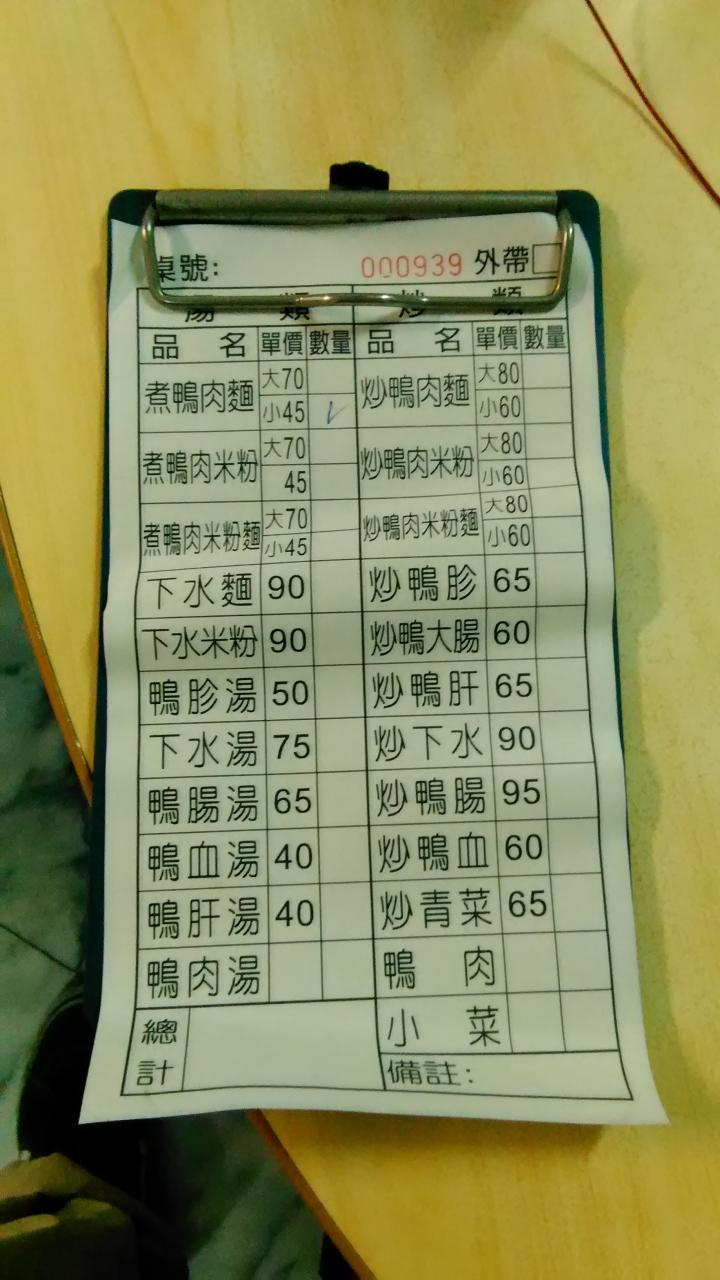 桌號: 000939 外帶
湯 類 炒 類
品 名 單價 數量 品 名 單價 數量
煮鴨肉麵 大70 炒鴨肉麵 大80
小45 ✓ 小60
煮鴨肉米粉 大70 炒鴨肉米粉 大80
45 小60
煮鴨肉米粉麵 大70 炒鴨肉米粉麵 大80
小45 小60
下水麵 90 炒鴨胗 65
下水米粉 90 炒鴨大腸 60
鴨胗湯 50 炒鴨肝 65
下水湯 75 炒下水 90
鴨腸湯 65 炒鴨腸 95
鴨血湯 40 炒鴨血 60
鴨肝湯 40 炒青菜 65
鴨肉湯 鴨 肉
總計 小 菜
備註: